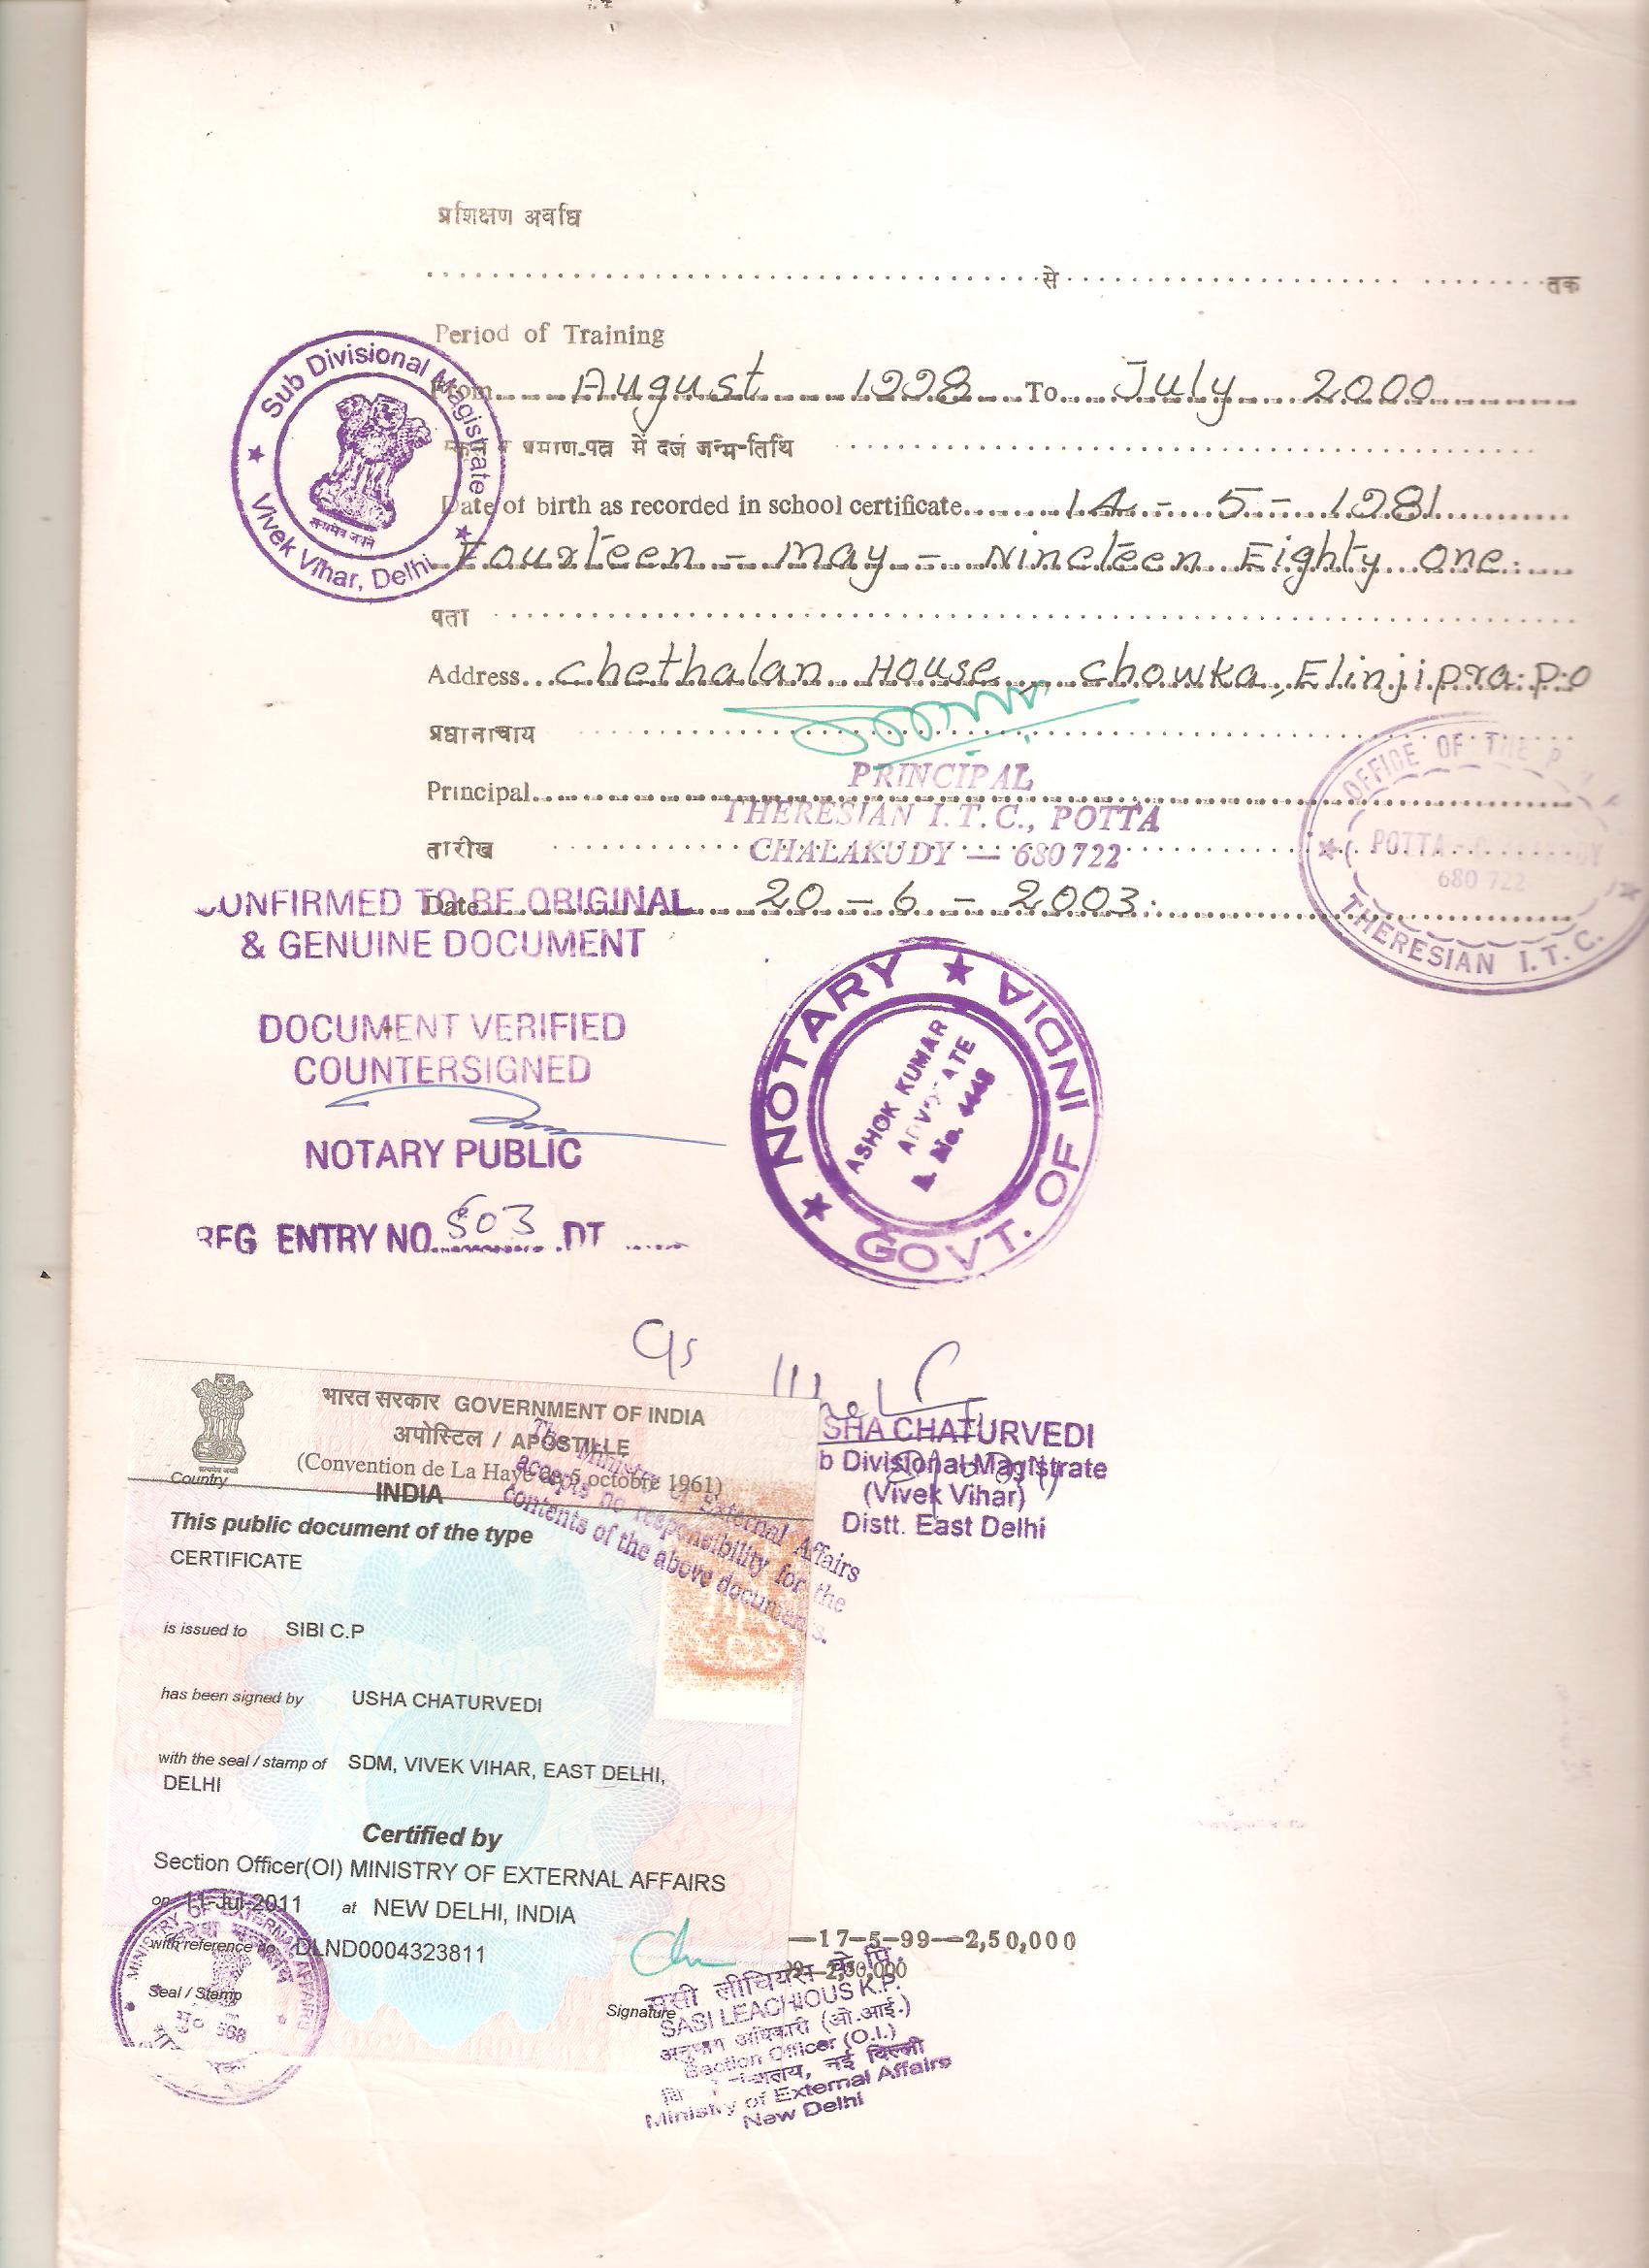 प्रशिक्षण अवधि
से तक
Period of Training
From August 1998 To July 2000
प्रमाण-पत्र में दर्ज जन्म-तिथि
Date of birth as recorded in school certificate 14 - 5 - 1981
Fourteen - may - Nineteen Eighty one.
पता
Address Chethalan House, Chowka, Elinjipra. P.O
प्रधानाचार्य
PRINCIPAL
Principal
THERESIAN I.T.C., POTTA
तारीख
CHALAKUDY — 680 722
Date 20 - 6 - 2003.
Sub Divisional Magistrate
Vivek Vihar, Delhi
सत्यमेव जयते
OFFICE OF THE
POTTA
680 722
THERESIAN I.T.C.
CONFIRMED TO BE ORIGINAL
& GENUINE DOCUMENT
DOCUMENT VERIFIED
COUNTERSIGNED
NOTARY PUBLIC
REG ENTRY NO. 803 DT
NOTARY
GOVT. OF INDIA
ASHOK KUMAR
ADVOCATE
No. 4448
SHA CHATURVEDI
b Divisional Magistrate
(Vivek Vihar)
Distt. East Delhi
भारत सरकार GOVERNMENT OF INDIA
अपोस्टिल / APOSTILLE
(Convention de La Haye de 5 octobre 1961)
Country
INDIA
The Ministry of External Affairs
accepts no responsibility for the
contents of the above documents.
This public document of the type
CERTIFICATE
is issued to SIBI C.P
has been signed by USHA CHATURVEDI
with the seal / stamp of SDM, VIVEK VIHAR, EAST DELHI,
DELHI
Certified by
Section Officer(OI) MINISTRY OF EXTERNAL AFFAIRS
on 11-Jul-2011 at NEW DELHI, INDIA
with reference no. DLND0004323811
Seal / Stamp
Signature
MINISTRY OF EXTERNAL AFFAIRS
—17-5-99—2,50,000
99—2,50,000
SASI LEACHIOUS K.P.
अनुभाग अधिकारी (ओ.आई.)
Section Officer (O.I.)
नई दिल्ली
Ministry of External Affairs
New Delhi